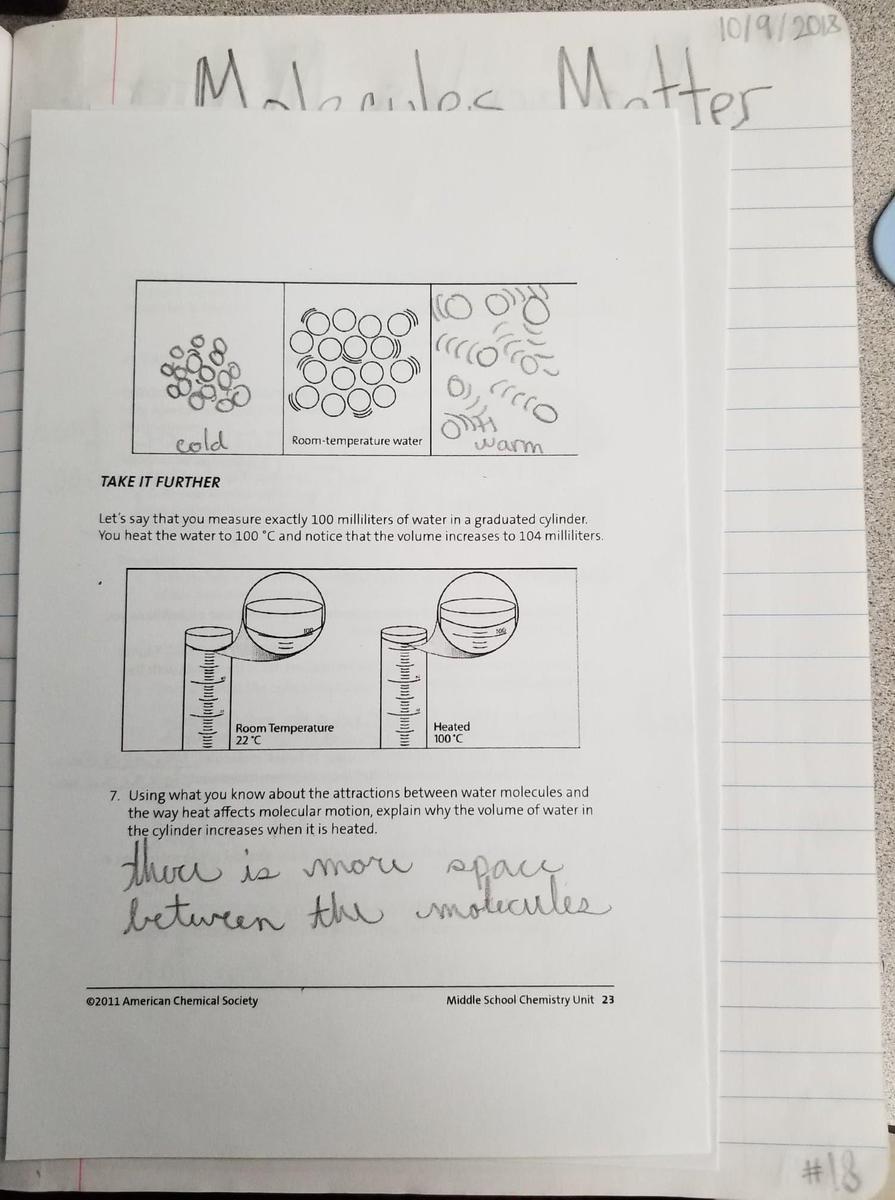 10/9/2018
Molecules Matter
cold
Room-temperature water
warm
TAKE IT FURTHER
Let's say that you measure exactly 100 milliliters of water in a graduated cylinder.
You heat the water to 100 °C and notice that the volume increases to 104 milliliters.
100
100
Room Temperature
22 °C
Heated
100 °C
7. Using what you know about the attractions between water molecules and
the way heat affects molecular motion, explain why the volume of water in
the cylinder increases when it is heated.
there is more space
between the molecules
©2011 American Chemical Society
Middle School Chemistry Unit 23
#18